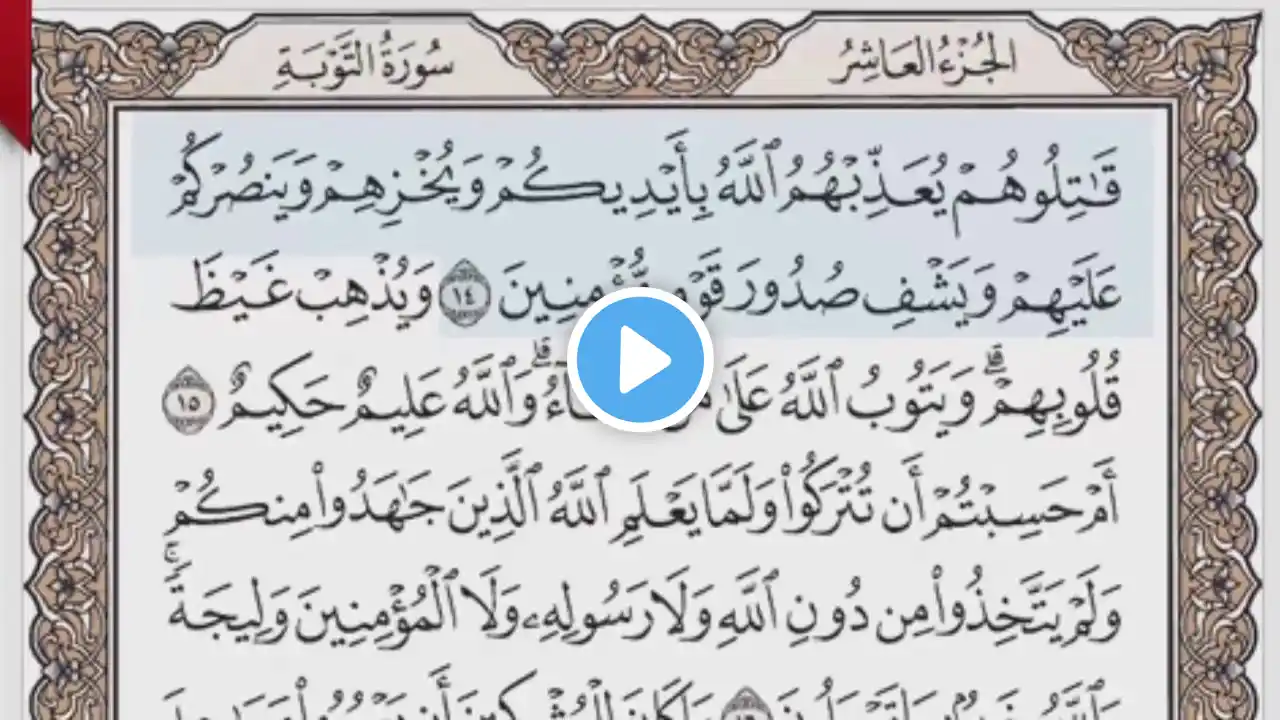 الجزء العاشر
سورة التوبة
قَٰتِلُوهُمْ يُعَذِّبْهُمُ ٱللَّهُ بِأَيْدِيكُمْ وَيُخْزِهِمْ وَيَنصُرْكُمْ
عَلَيْهِمْ وَيَشْفِ صُدُورَ قَوْمٍ مُّؤْمِنِينَ ١٤ وَيُذْهِبْ غَيْظَ
قُلُوبِهِمْ ۗ وَيَتُوبُ ٱللَّهُ عَلَىٰ وَٱللَّهُ عَلِيمٌ حَكِيمٌ ١٥
أَمْ حَسِبْتُمْ أَن تُتْرَكُوا۟ وَلَمَّا يَعْلَمِ ٱللَّهُ ٱلَّذِينَ جَٰهَدُوا۟ مِنكُمْ
وَلَمْ يَتَّخِذُوا۟ مِن دُونِ ٱللَّهِ وَلَا رَسُولِهِۦ وَلَا ٱلْمُؤْمِنِينَ وَلِيجَةً ۚ